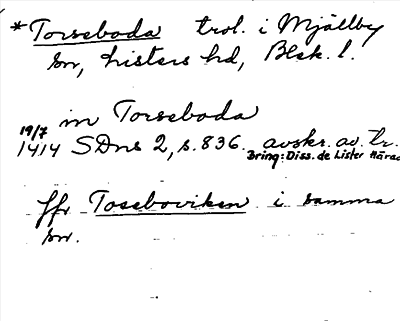 *Torseboda trol. i Mjällby
sn, Listers hd, Blek. l.
in Torseboda
19/7
1414 SDns 2, s. 836. avskr. av tr.
Bring: Diss. de Lister Härad
Jfr Toseboviken i samma
sn.